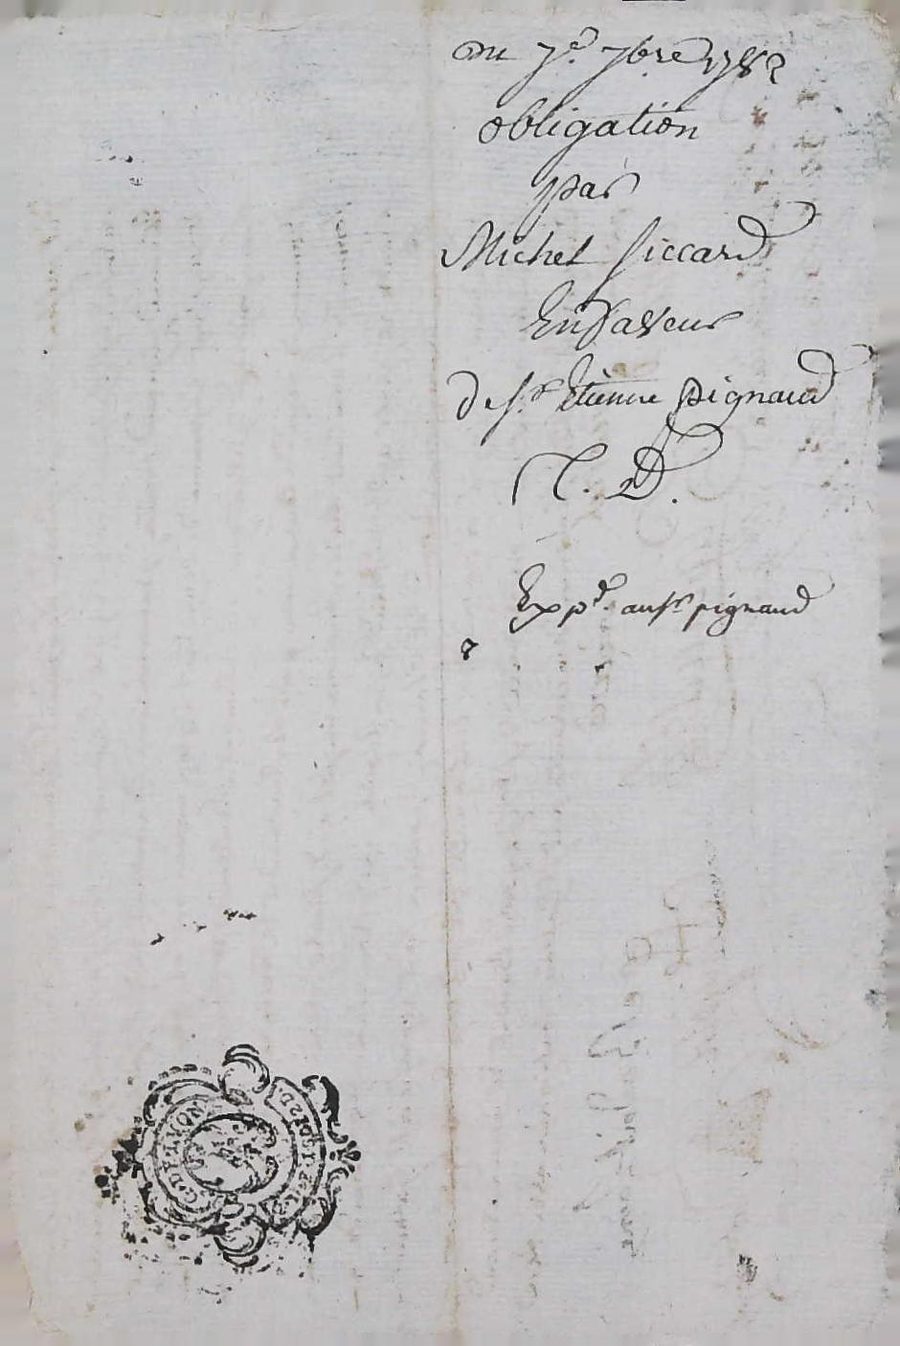 Du 7e. 7bre 1782
obligation
par
Michel Siccard
En faveur
de Sr. Etienne Pignaud
C. D.
Expd. au Sr pignaud
G. DE LYON